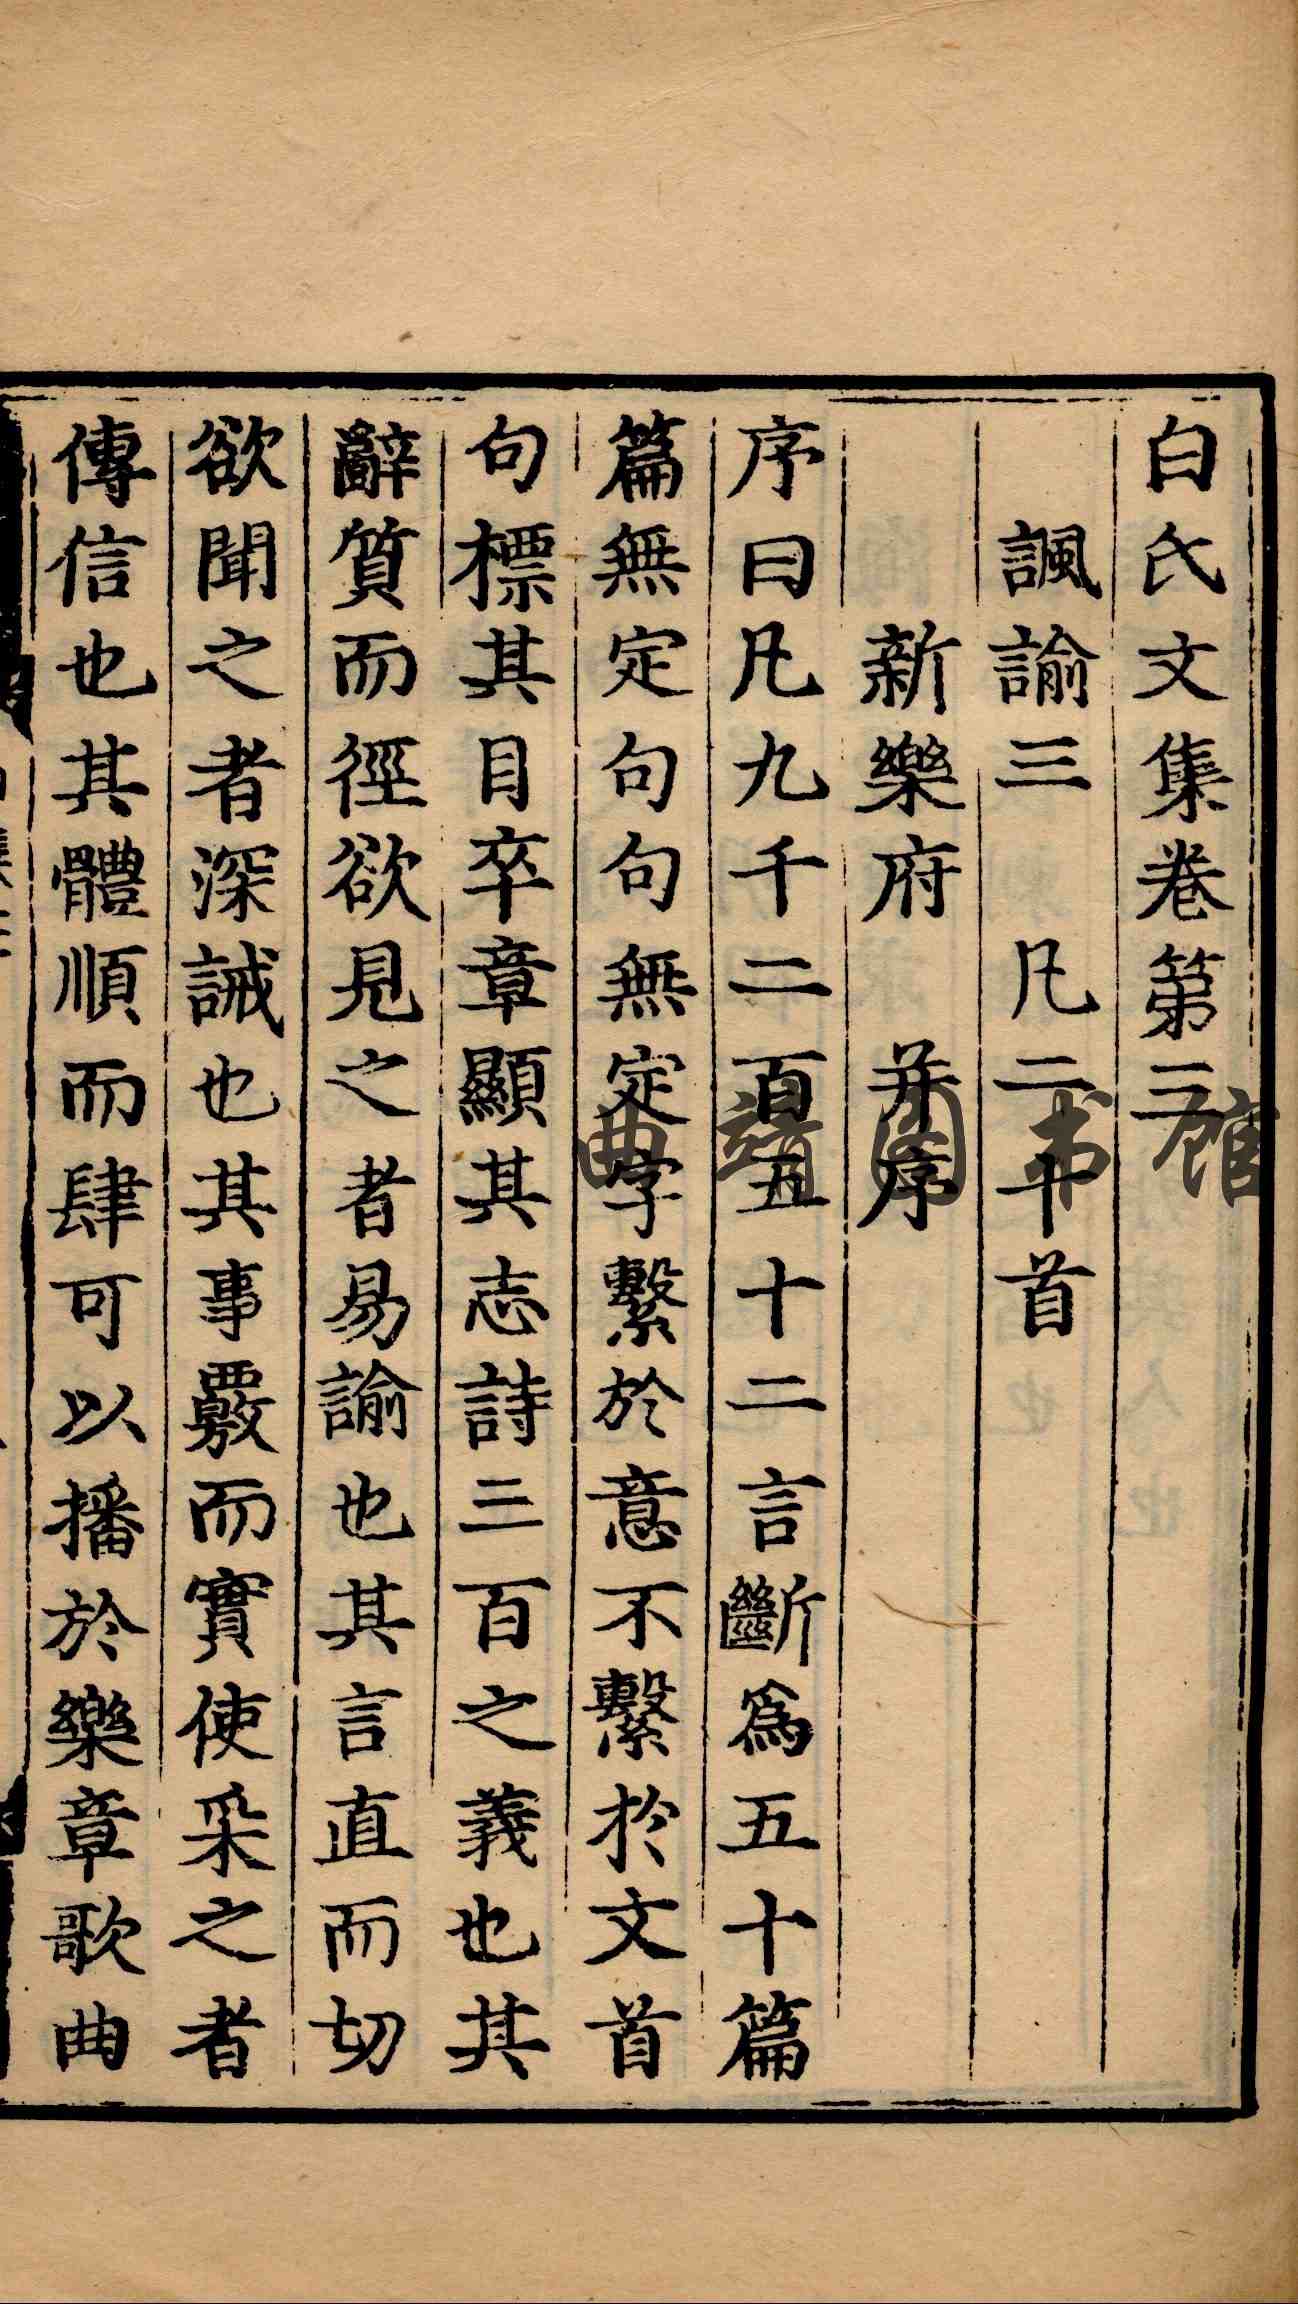 白氏文集卷第三
諷諭三　凡二十首
新樂府　并序
序曰凡九千二百五十二言斷爲五十篇
篇無定句句無定字繫於意不繫於文首
句標其目卒章顯其志詩三百之義也其
辭質而徑欲見之者易諭也其言直而切
欲聞之者深誡也其事覈而實使采之者
傳信也其體順而肆可以播於樂章歌曲